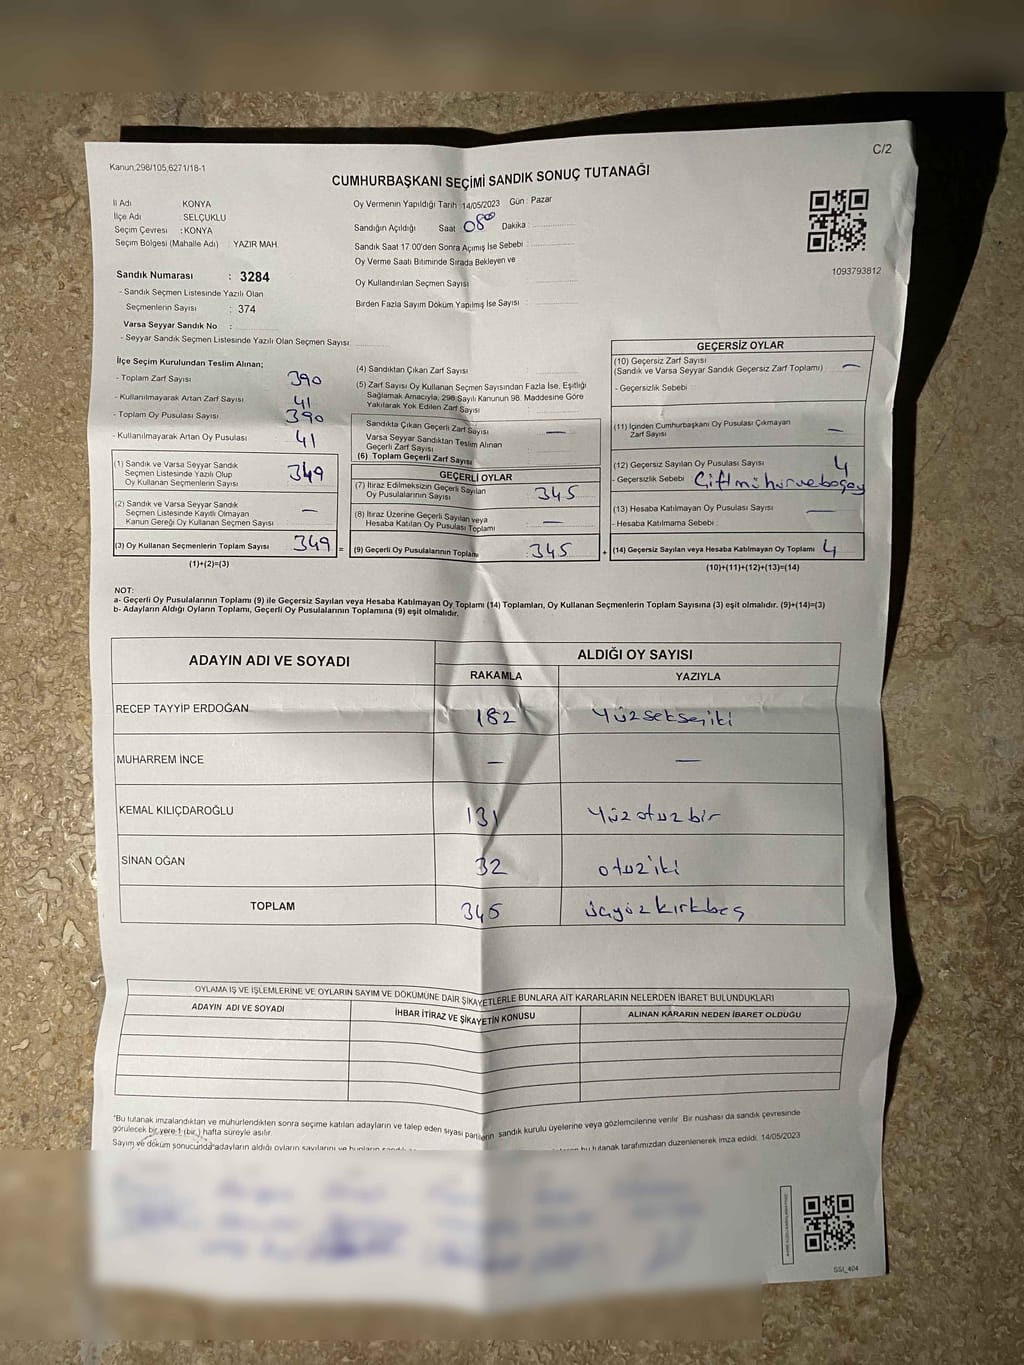 Kanun,298/105,6271/18-1
C/2
CUMHURBAŞKANI SEÇİMİ SANDIK SONUÇ TUTANAĞI
İl Adı KONYA
İlçe Adı : SELÇUKLU
Seçim Çevresi : KONYA
Seçim Bölgesi (Mahalle Adı) : YAZIR MAH.
Sandık Numarası : 3284
- Sandık Seçmen Listesinde Yazılı Olan
Seçmenlerin Sayısı : 374
Varsa Seyyar Sandık No :
- Seyyar Sandık Seçmen Listesinde Yazılı Olan Seçmen Sayısı
Oy Vermenin Yapıldığı Tarih : 14/05/2023 Gün : Pazar
Sandığın Açıldığı Saat 08⁰⁰ Dakika :
Sandık Saat 17:00'den Sonra Açılmış İse Sebebi :
Oy Verme Saati Bitiminde Sırada Bekleyen ve
Oy Kullandırılan Seçmen Sayısı
Birden Fazla Sayım Döküm Yapılmış İse Sayısı :
1093793812
İlçe Seçim Kurulundan Teslim Alınan;
- Toplam Zarf Sayısı 390
- Kullanılmayarak Artan Zarf Sayısı 41
- Toplam Oy Pusulası Sayısı 390
- Kullanılmayarak Artan Oy Pusulası 41
(1) Sandık ve Varsa Seyyar Sandık
Seçmen Listesinde Yazılı Olup
Oy Kullanan Seçmenlerin Sayısı 349
(2) Sandık ve Varsa Seyyar Sandık
Seçmen Listesinde Kayıtlı Olmayan
Kanun Gereği Oy Kullanan Seçmen Sayısı —
(3) Oy Kullanan Seçmenlerin Toplam Sayısı 349 =
(1)+(2)=(3)
(4) Sandıktan Çıkan Zarf Sayısı
(5) Zarf Sayısı Oy Kullanan Seçmen Sayısından Fazla İse, Eşitliği
Sağlamak Amacıyla, 298 Sayılı Kanunun 98. Maddesine Göre
Yakılarak Yok Edilen Zarf Sayısı
Sandıkta Çıkan Geçerli Zarf Sayısı —
Varsa Seyyar Sandıktan Teslim Alınan
Geçerli Zarf Sayısı
(6) Toplam Geçerli Zarf Sayısı
GEÇERLİ OYLAR
(7) İtiraz Edilmeksizin Geçerli Sayılan
Oy Pusulalarının Sayısı 345
(8) İtiraz Üzerine Geçerli Sayılan veya
Hesaba Katılan Oy Pusulası Toplamı —
(9) Geçerli Oy Pusulalarının Toplamı 345 +
GEÇERSİZ OYLAR
(10) Geçersiz Zarf Sayısı
(Sandık ve Varsa Seyyar Sandık Geçersiz Zarf Toplamı) —
- Geçersizlik Sebebi
(11) İçinden Cumhurbaşkanı Oy Pusulası Çıkmayan
Zarf Sayısı —
(12) Geçersiz Sayılan Oy Pusulası Sayısı 4
- Geçersizlik Sebebi Çift mühür ve boşoy
(13) Hesaba Katılmayan Oy Pusulası Sayısı —
- Hesaba Katılmama Sebebi :
(14) Geçersiz Sayılan veya Hesaba Katılmayan Oy Toplamı 4
(10)+(11)+(12)+(13)=(14)
NOT:
a- Geçerli Oy Pusulalarının Toplamı (9) ile Geçersiz Sayılan veya Hesaba Katılmayan Oy Toplamı (14) Toplamları, Oy Kullanan Seçmenlerin Toplam Sayısına (3) eşit olmalıdır. (9)+(14)=(3)
b- Adayların Aldığı Oyların Toplamı, Geçerli Oy Pusulalarının Toplamına (9) eşit olmalıdır.
ADAYIN ADI VE SOYADI
ALDIĞI OY SAYISI
RAKAMLA YAZIYLA
RECEP TAYYİP ERDOĞAN 182 Yüzsekseniki
MUHARREM İNCE — —
KEMAL KILIÇDAROĞLU 131 Yüzotuzbir
SİNAN OĞAN 32 otuziki
TOPLAM 345 üçyüzkırkbeş
OYLAMA İŞ VE İŞLEMLERİNE VE OYLARIN SAYIM VE DÖKÜMÜNE DAİR ŞİKAYETLERLE BUNLARA AİT KARARLARIN NELERDEN İBARET BULUNDUKLARI
ADAYIN ADI VE SOYADI İHBAR İTİRAZ VE ŞİKAYETİN KONUSU ALINAN KARARIN NEDEN İBARET OLDUĞU
*Bu tutanak imzalandıktan ve mühürlendikten sonra seçime katılan adayların ve talep eden siyasi partilerin sandık kurulu üyelerine veya gözlemcilerine verilir. Bir nüshası da sandık çevresinde
görülecek bir yere 1 (bir ) hafta süreyle asılır.
Sayım ve döküm sonucunda adayların aldığı oyların sayılarını ve bunların bu tutanak tarafımızdan düzenlenerek imza edildi. 14/05/2023
SSI_404